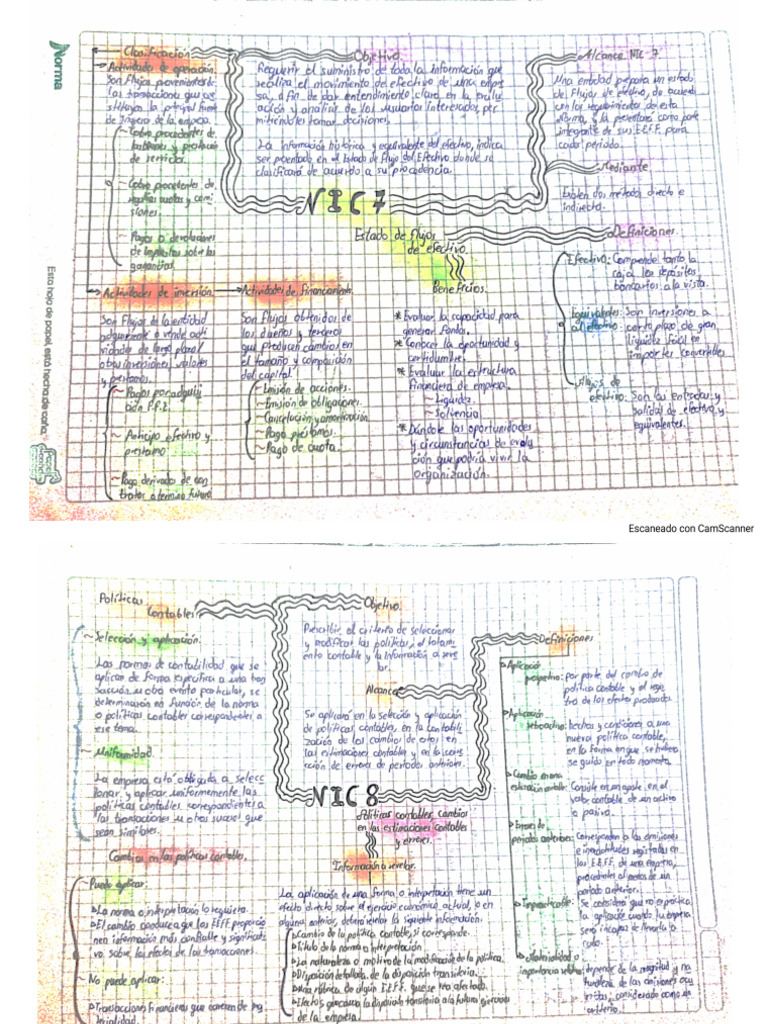 Norma
Esta hoja de papel, está hecha de caña.
Clasificación
Actividades de operación.
Son flujos provenientes de
las transacciones que con
la principal fuente
de ingreso de la empresa.
~ Cobro procedentes de
los bienes y prestación
de servicios.
~ Cobro procedentes de
regalías cuotas y comi
siones.
~ Pagos o devoluciones
de impuestos sobre las
ganancias.
Objetivo.
Requerir el suministro de toda la información que
realiza el movimiento del efectivo de una empre
sa, a fin de dar entendimiento claro, en la evalu
ación y análisis de los usuarios interesados, per
mitiéndoles tomar decisiones.
La información histórica y equivalente del efectivo, indica
ser presentado en el Estado de Flujo del Efectivo donde se
clasificará de acuerdo a su procedencia.
Alcance NIC 7
Una entidad prepara un estado
de flujos de efectivo, de acuerdo
con los requerimientos de esta
Norma, y la presentará como parte
integrante de sus EE.FF. para
cada periodo.
Mediante
Existen dos métodos directo e
indirecto.
NIC 7
Estado de flujos
de efectivo
Definiciones.
Efectivo: Comprende tanto la
caja, los depósitos
bancarios a la vista.
Equivalentes: Son inversiones a
al efectivo: corto plazo de gran
liquidez fácil en
importes convertibles
Flujos de
efectivo: Son las entradas y
salidas de efectivo y
equivalentes.
Beneficios.
* Evaluar la capacidad para
generar fondos.
* Conocer la oportunidad y
certidumbre.
* Evaluar la estructura
financiera de empresa.
~ Liquidez
~ Solvencia
* Dándole las oportunidades
y circunstancias de evolu
ción que podría vivir la
organización.
Actividades de inversión.
Son flujos de la entidad
adquiriendo o vende acti
vidades de largo plazo/
otras inversiones, valores
y préstamos.
~ Pagos por adquisi
ción P.P.E.
~ Anticipo efectivo y
préstamo
~ Pago derivados de con
tratos a término futuro
Actividades de financiamiento.
Son flujos obtenidos de
los dueños y terceros
que producen cambios en
el tamaño y composición
del capital.
~ Emisión de acciones.
~ Emisión de obligaciones.
~ Cancelación y amortización
~ Pago préstamos.
~ Pago de cuota.
Escaneado con CamScanner
Políticas
Contables
~ Selección y aplicación.
Las normas de contabilidad que se
aplican de forma específica a una tran
sacción u otro evento particular, se
determinarán en función de la norma
o políticas contables correspondientes a
ese tema.
~ Uniformidad.
La empresa está obligada a selecc
ionar y aplicar uniformemente, las
políticas contables correspondientes a
las transacciones u otros sucesos que
sean similares.
Cambios en las políticas contables.
Puede aplicar:
La norma o interpretación lo requiere.
El cambio conduce a que los EEFF proporcio
nen información más confiable y significati
vo sobre los efectos de las transacciones.
No puede aplicar:
Transacciones financieras que carecen de ma
terialidad.
Objetivo.
Prescribir el criterio de seleccionar
y modificar las políticas, el tratami
ento contable y la información a reve
lar.
Alcance
Se aplicará en la selección y aplicación
de políticas contables, en la contabili
zación de los cambios de estos, en
las estimaciones contables y en la corre
cción de errores de periodos anteriores.
NIC 8
Políticas contables, cambios
en las estimaciones contables
y errores.
Información a revelar.
La aplicación de una forma o interpretación tiene un
efecto directo sobre el ejercicio económico actual, o en
alguno anterior, deberá revelar la siguiente información.
Cambio de la política contable, si corresponde.
Título de la norma o interpretación.
La naturaleza o motivo de la modificación de la política.
Disposición detallada de la disposición transitoria.
rúbrica de algún E.E.F.F. que se vea afectado.
Efectos que causa la disposición transitoria a la futura ejercicios
de la empresa.
Definiciones
Aplicación
prospectiva: por parte del cambio de
política contable y el regis
tro de los efectos producidos.
Aplicación
retroactiva: hechos y condiciones, a una
nueva política contable,
en la forma en que se hubiera
seguido en todo momento.
Cambio en una
estimación contable: Consiste en un ajuste, en el
valor contable de un activo
o pasivo.
Errores de
periodos anteriores: Corresponden a las omisiones
e inexactitudes registradas en
los E.E.F.F. de una empresa,
procedentes al menos de un
periodo anterior.
Impracticable: Se considera que no es práctica
la aplicación cuando la empresa
será incapaz de llevarlo a
cabo.
Materialidad o
importancia relativa: depende de la magnitud y na
turaleza de las omisiones ocu
rridas, considerado como un
criterio.